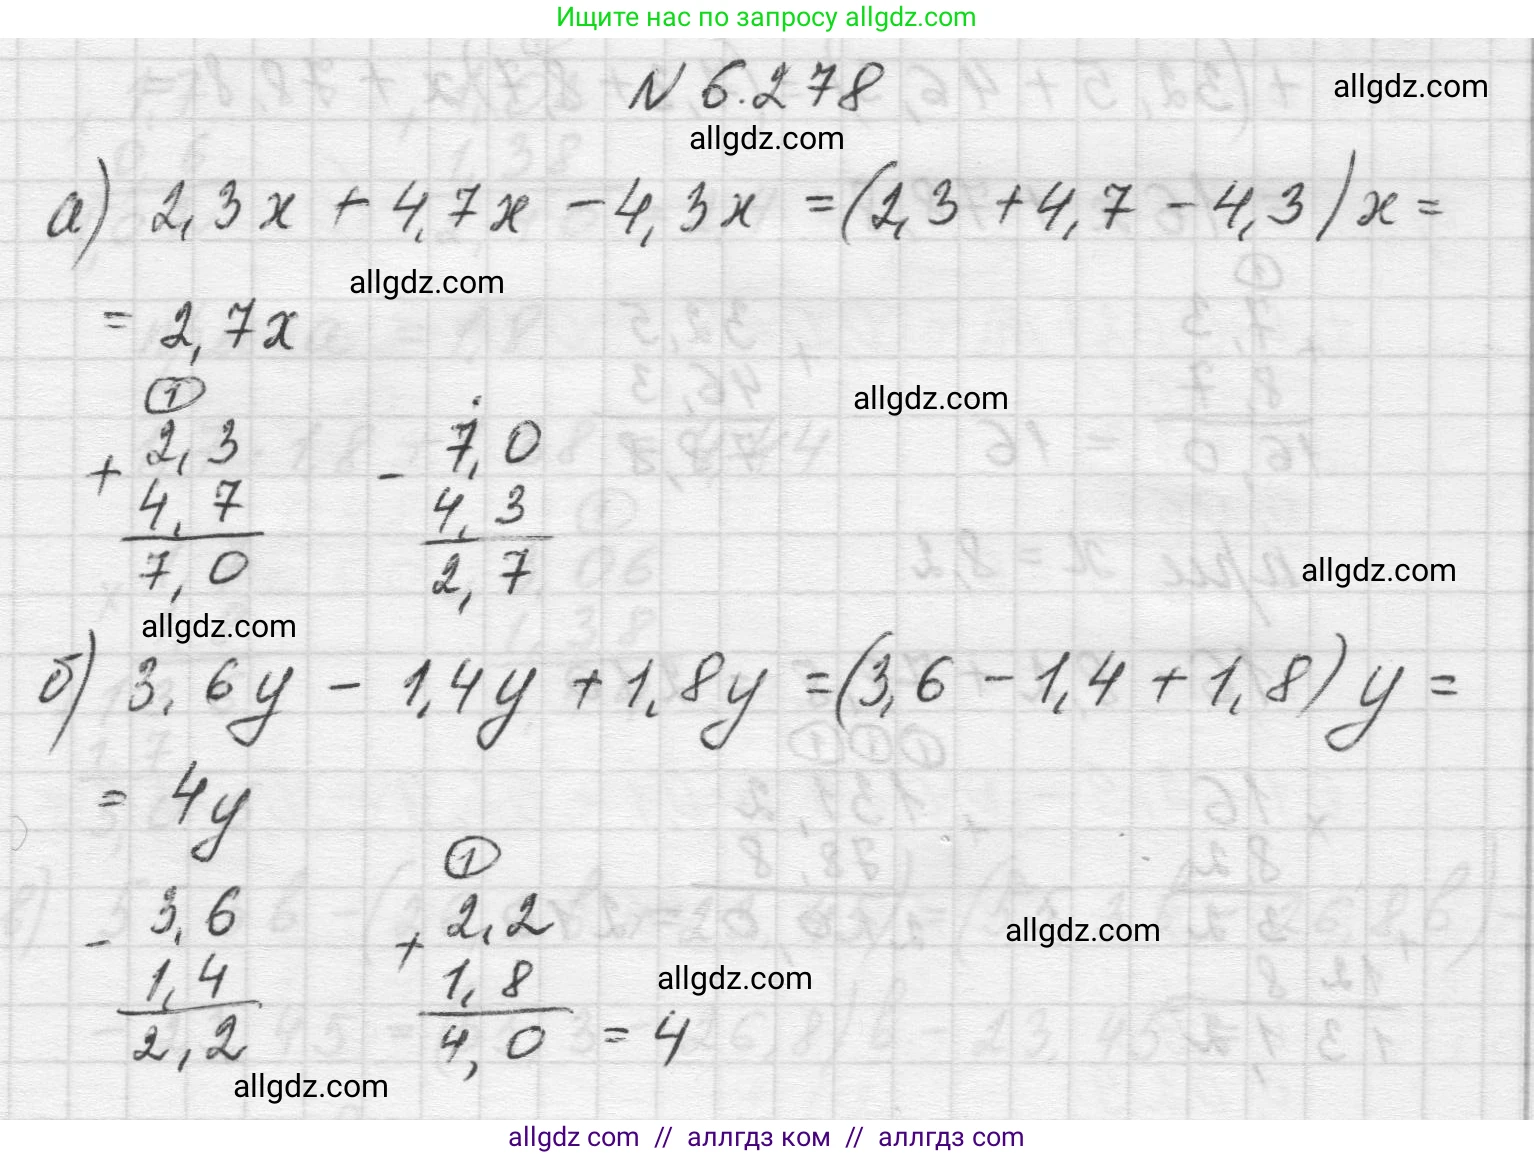 Ищите нас по запросу allgdz.com
N 6.278
allgdz.com
allgdz.com
а) 2,3x + 4,7x - 4,3x = (2,3 + 4,7 - 4,3)x =
allgdz.com
= 2,7x
allgdz.com
1
+ 2,3
4,7
7,0
- 7,0
4,3
2,7
allgdz.com
allgdz.com
б) 3,6y - 1,4y + 1,8y = (3,6 - 1,4 + 1,8)y =
= 4y
- 3,6
1,4
2,2
1
+ 2,2
1,8
4,0 = 4
allgdz.com
allgdz.com
allgdz.com
allgdz com // аллгдз ком // аллгдз com